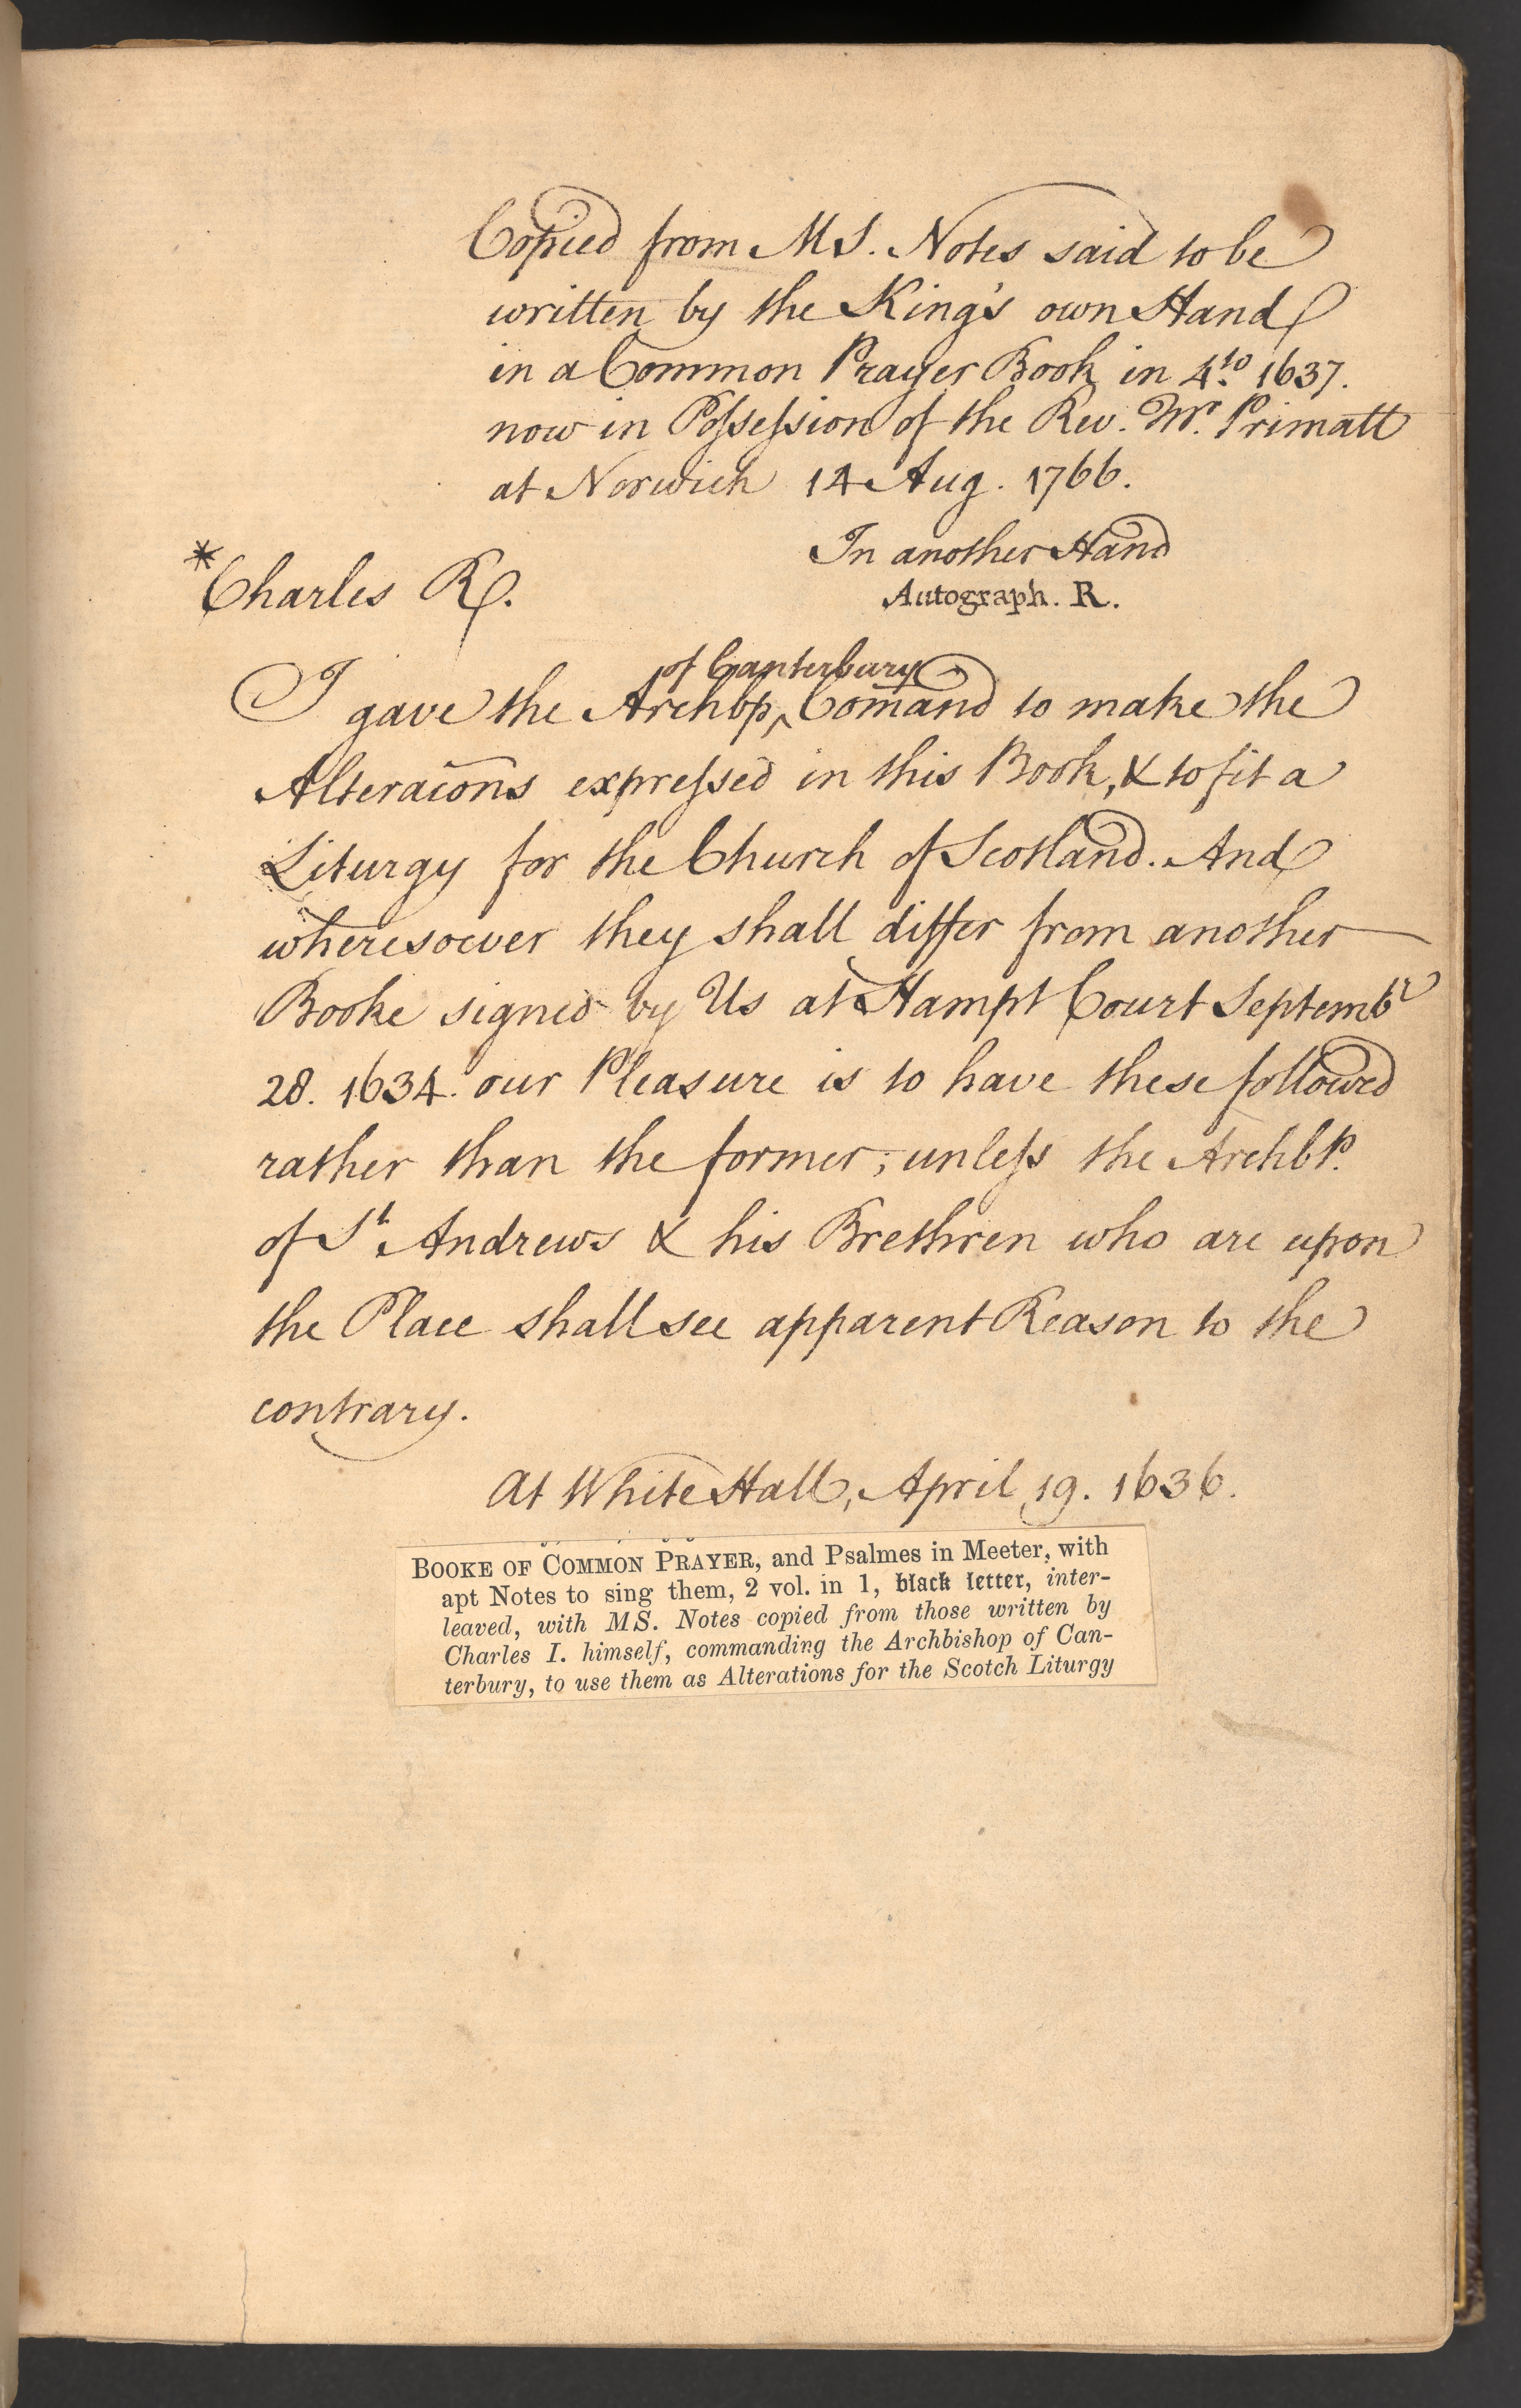 Copied from MS. Notes said to be
written by the King's own Hand
in a Common Prayer Book in 4to. 1637.
now in Poſseſsion of the Rev. Mr. Primatt
at Norwich 14 Aug. 1766.
In another Hand
*Charles R. Autograph. R.
of Canterbury
I gave the Archbp ‸ Com̄and to make the
Alteracōns expreſsed in this Book, & to fit a
Liturgy for the Church of Scotland. And
wheresoever they shall differ from another
Booke signed by Us at Hampt Court Septembr
28. 1634. our Pleasure is to have these followed
rather than the former; unleſs the Archbp.
of St Andrews & his Brethren who are upon
the Place shall see apparent Reason to the
contrary.
At White Hall, April 19. 1636.
BOOKE OF COMMON PRAYER, and Psalmes in Meeter, with
apt Notes to sing them, 2 vol. in 1, black letter, inter-
leaved, with MS. Notes copied from those written by
Charles I. himself, commanding the Archbishop of Can-
terbury, to use them as Alterations for the Scotch Liturgy